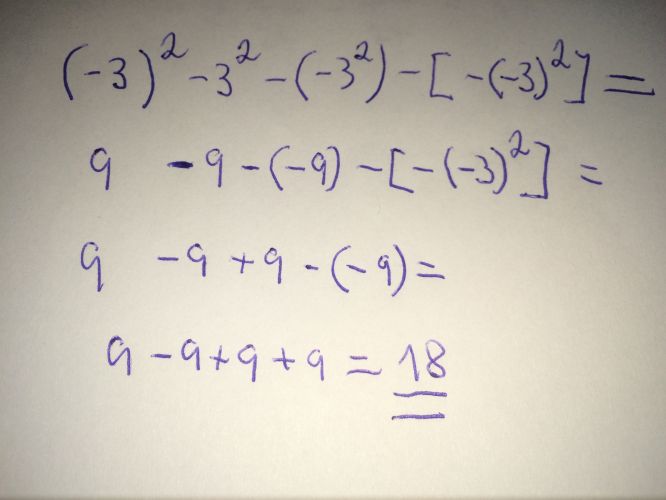 (-3)² -3² -(-3²) -[-(-3)²] =
9 -9 -(-9) -[-(-3)²] =
9 -9 +9 -(-9) =
9 -9 +9 +9 = 18